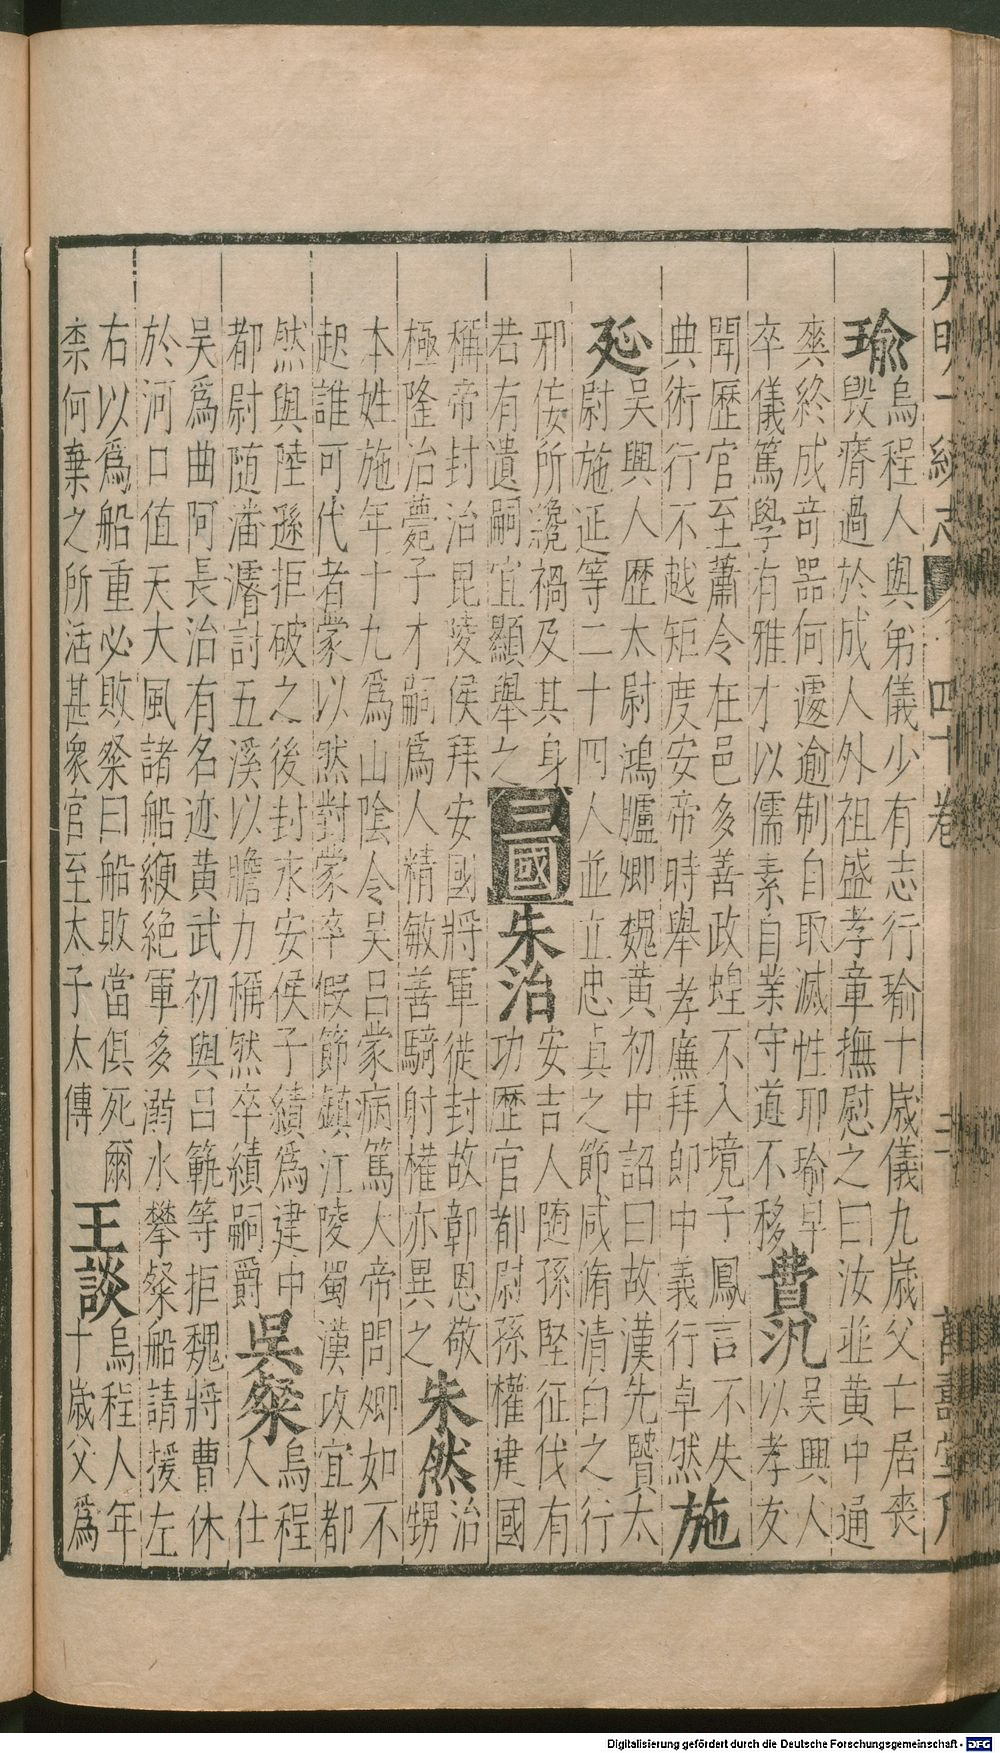 大明一統志 四十卷 萬壽堂刊
瑜
烏程人與弟儀少有志行瑜十歲儀九歲父亡居喪
毀瘠過於成人外祖盛孝章撫慰之曰汝並黃中通
爽終成竒器何遽逾制自取滅性耶瑜早
卒儀篤學有雅才以儒素自業守道不移
費汎
吳興人
以孝友
聞歷官至蕭令在邑多善政蝗不入境子鳳言不失
典術行不越矩度安帝時舉孝廉拜郎中義行卓然
施
延
吳興人歷太尉鴻臚卿魏黃初中詔曰故漢先賢太
尉施延等二十四人並立忠貞之節咸脩清白之行
邪佞所讒禍及其身
若有遺嗣宜顯舉之
三國
朱治
安吉人随孫堅征伐有
功歷官都尉孫權建國
稱帝封治毘陵侯拜安國將軍徙封故鄣恩敬
極隆治薨子才嗣爲人精敏善騎射權亦異之
朱然
治
甥
本姓施年十九爲山陰令吳呂蒙病篤大帝問卿如不
起誰可代者蒙以然對蒙卒假節鎮江陵蜀漢攻宜都
然與陸遜拒破之後封永安侯子績爲建中
都尉随潘濬討五溪以膽力稱然卒績嗣爵
吳粲
烏程
人仕
吳爲曲阿長治有名迹黃武初與呂範等拒魏將曹休
於河口值天大風諸船綆絕軍多溺水攀粲船請援左
右以爲船重必敗粲曰船敗當俱死爾
柰何棄之所活甚衆官至太子太傅
王談
烏程人年
十歲父爲
Digitalisierung gefördert durch die Deutsche Forschungsgemeinschaft - DFG